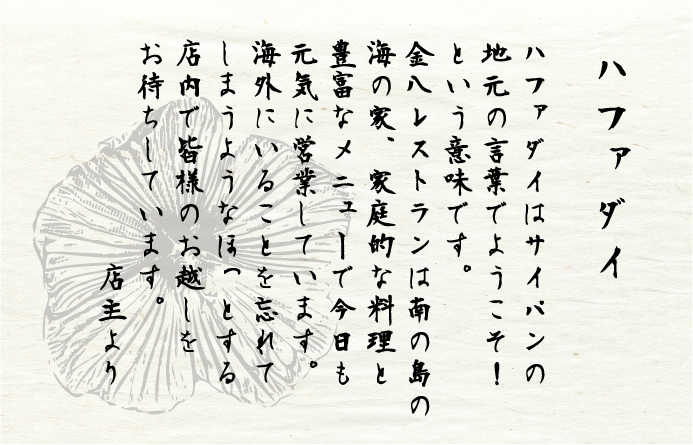 ハファダイ
ハファダイはサイパンの
地元の言葉でようこそ！
という意味です。
金八レストランは南の島の
海の家、家庭的な料理と
豊富なメニューで今日も
元気に営業しています。
海外にいることを忘れて
しまうようなほっとする
店内で皆様のお越しを
お待ちしています。
店主より